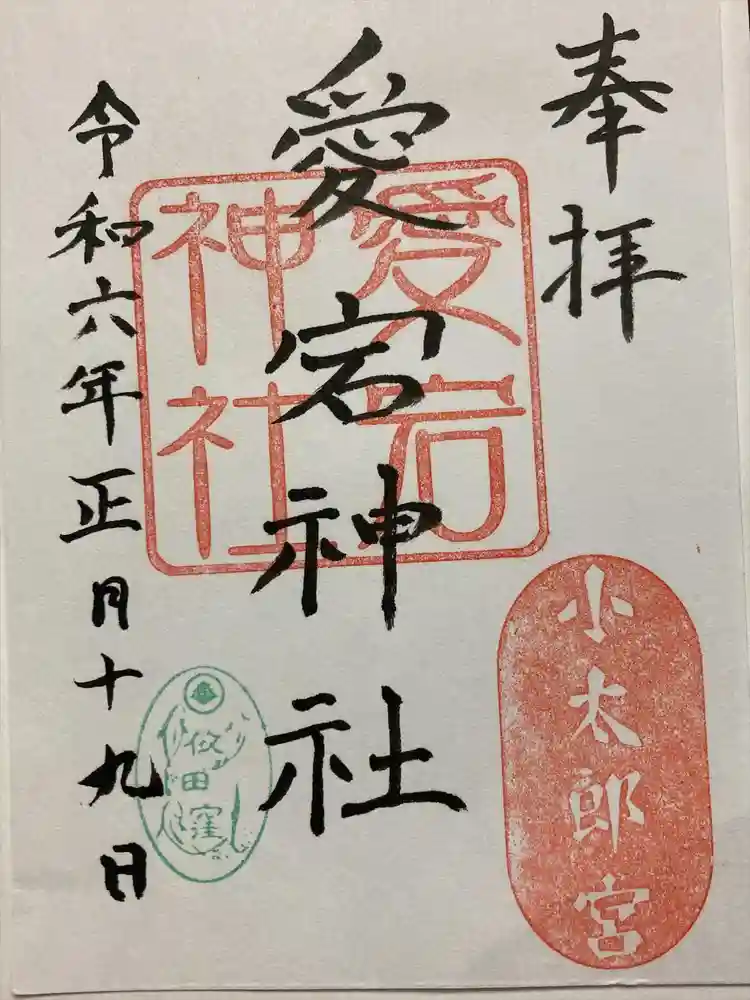 奉拝
小太郎宮
愛宕神社
愛宕
神社
依田窪
令和六年正月十九日